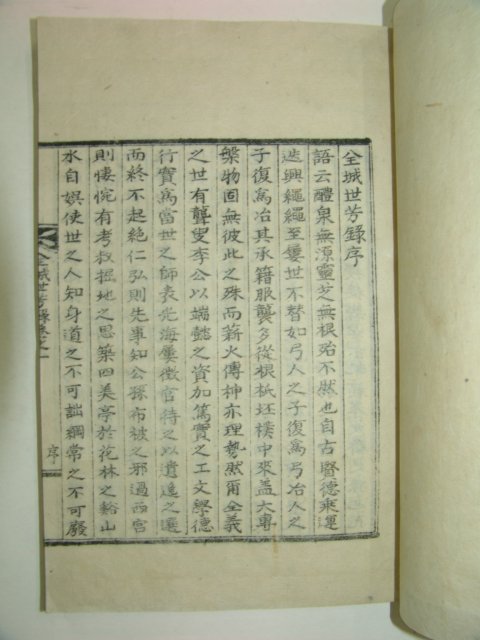 全城世芳錄序
語云醴泉無源靈芝無根殆不然也自古賢德乘運
迭興繩繩至屢世不替如弓人之子復爲弓冶人之
子復爲冶其承籍服襲多從根柢坯樸中來蓋大專
槃物固無彼此之殊而薪火傳神亦理勢然爾全義
之世有聾叟李公以端懿之資加篤實之工文學德
行實爲當世之師表先海屢徵官待之以遺逸之選
而終不起絶仁弘則先事知公孫布被之邪過西宮
則悽惋有考叔掘地之思築四美亭於花林之谿山
水自娛使世之人知身道之不可詘綱常之不可廢
全城世芳錄卷之一
序